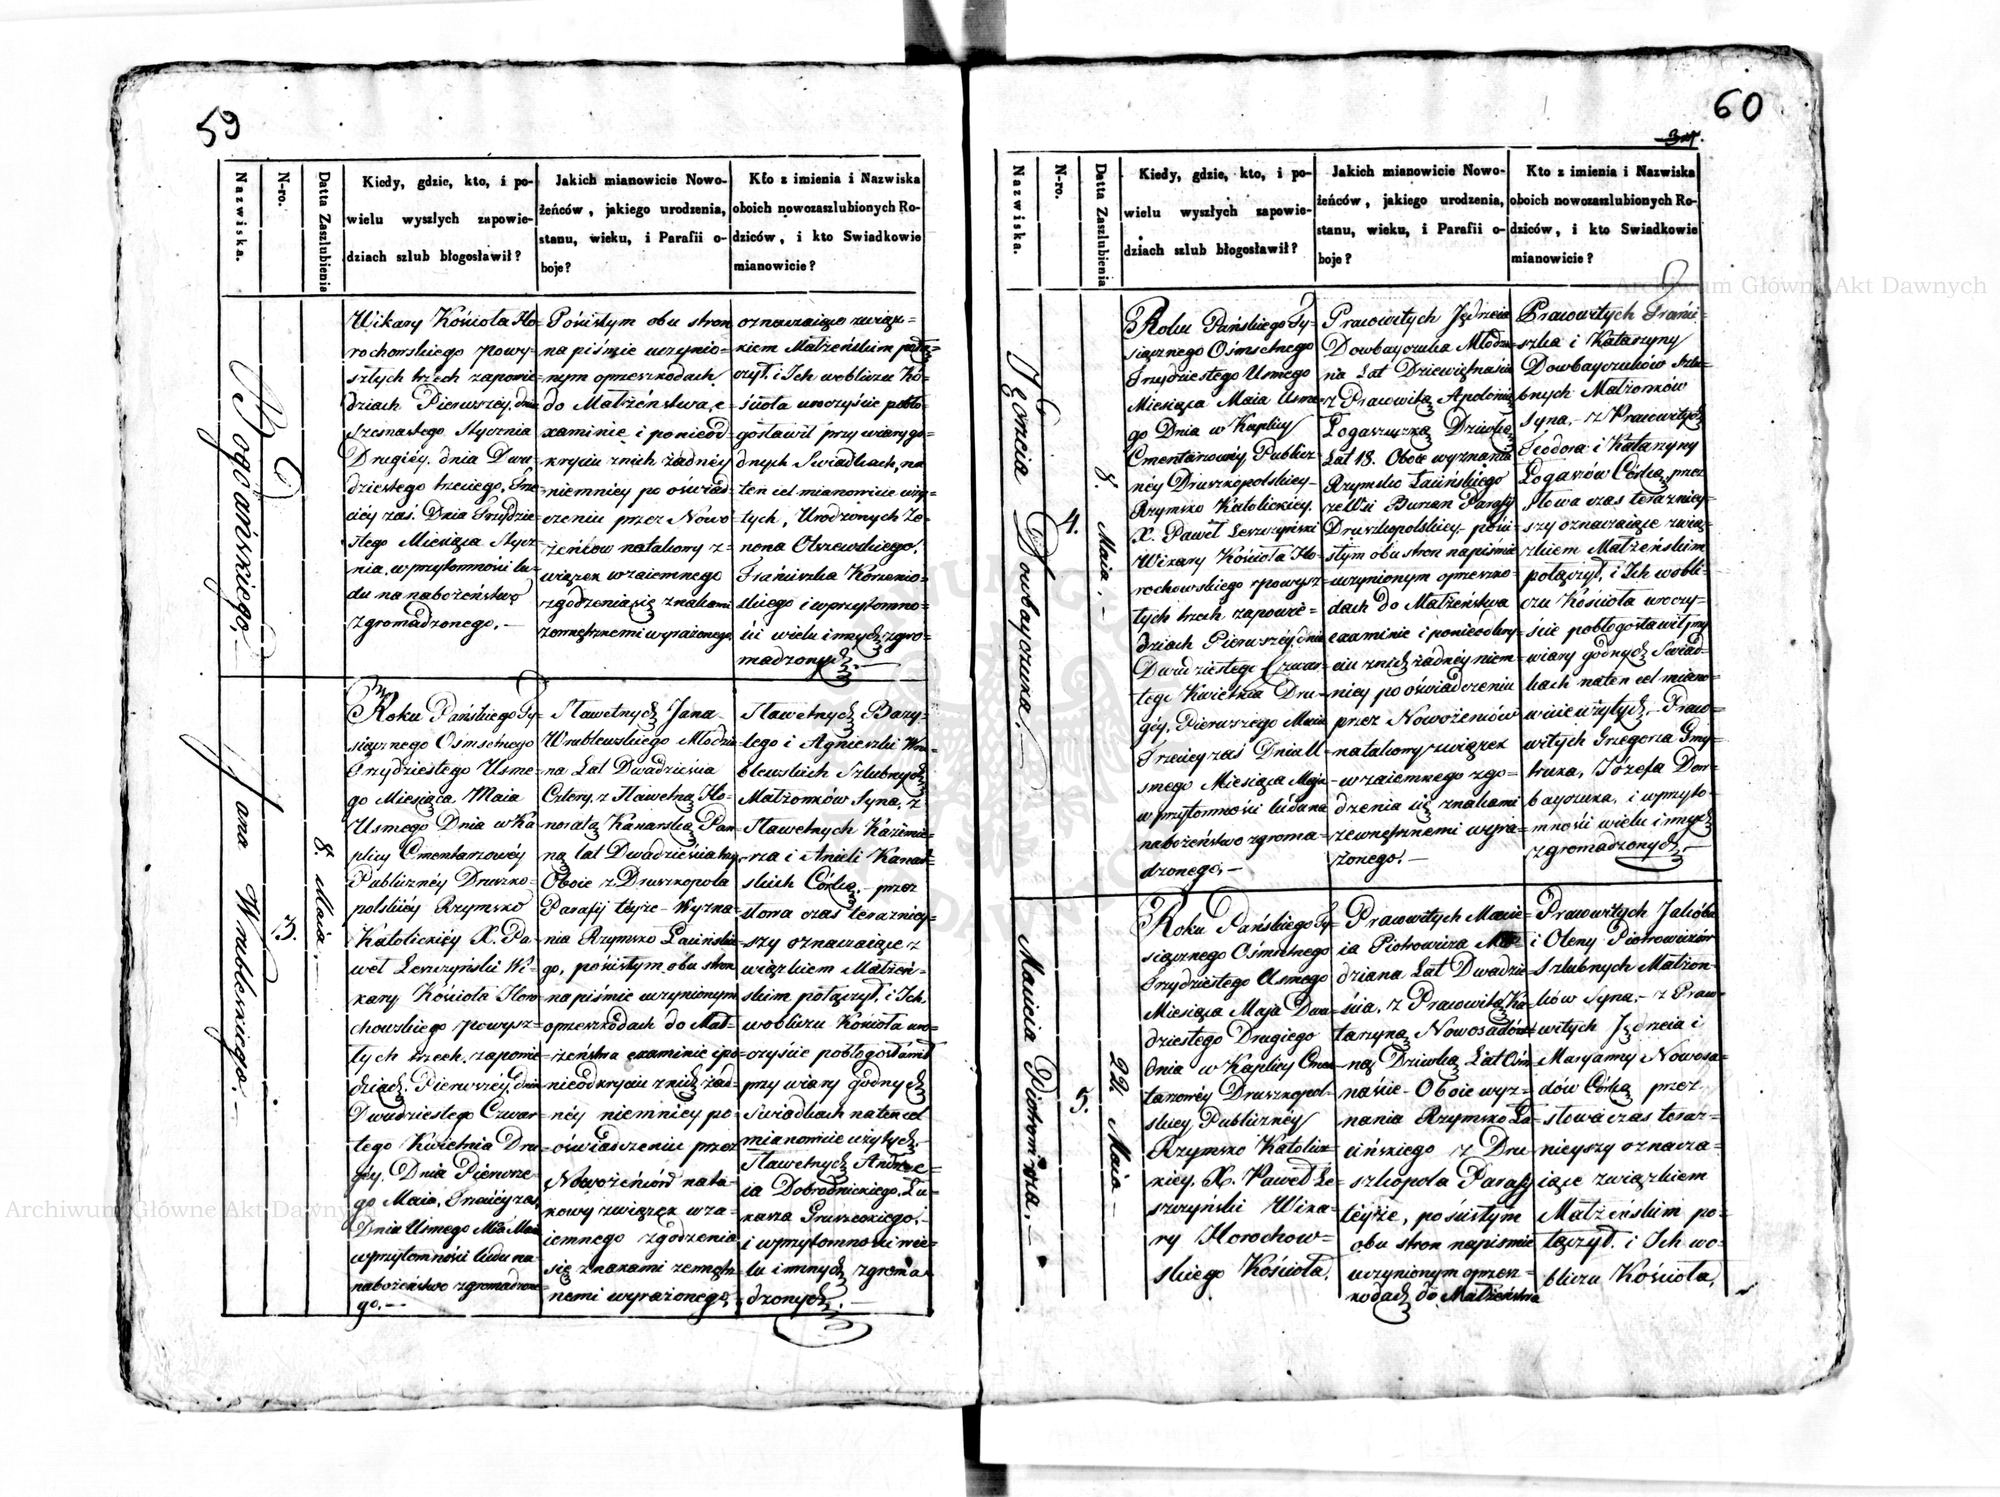 59
Nazwiska.
N-ro.
Datta Zaszlubienia
Kiedy, gdzie, kto, i po-
wielu wyszłych zapowie-
dziach szlub błogosławił?
Jakich mianowicie Nowo-
żeńców, jakiego urodzenia,
stanu, wieku, i Parafii o-
boje?
Kto z imienia i Nazwiska
oboich nowozaszlubionych Ro-
dziców, i kto Swiadkowie
mianowicie?
Bogdańskiego.
Wikary Kościoła Ho-
rochowskiego po wy-
szłych trzech zapowie-
dziach Pierwszéy, dnia
Szesnastego Stycznia
Drugiéy, dnia Dwu-
dziestego trzeciego, Trze-
ciéy zaś Dnia Trzydzie-
stego Miesiąca Stycz-
nia, w przytomności lu-
du na nabożeństwo
zgromadzonego.
Pościstym obu stron
na piśmie uczynio-
nym o przeszkodach
do Małżeństwa, e-
xaminie i ponieod-
kryciu z nich żadnéy
niemniey po oświad-
czeniu przez Nowo-
żeńców natakowy z-
wiązek wzaiemnego
zgodzenia się znakami
zewnętrznemi wyrażonego
oznaczaiące związ-
kiem Małżeńskim połą-
czył, i Ich wobliczu Ko-
ścioła uroczyście pobło-
gosławił przy wiary go-
dnych Swiadkach, na
ten cel mianowicie uży-
tych, Urodzonych Ze-
nona Olszewskiego,
Franciszka Korzenio-
skiego i w przytomno-
ści wielu innych zgro-
madzonych.
Jana Wrublewskiego.
3.
8. Maia.
Roku Pańskiego Ty-
siącznego Osmsetnego
Trzydziestego Usme-
go Miesiąca Maia
Usmego Dnia w Ka-
plicy Cmentarzowéy
Publicznéy Druszko-
polskiéy Rzymsko
Katolickiéy X. Pa-
weł Leszczyński Wi-
kary Kościoła Horo-
chowskiego po wysz-
łych trzech zapowie-
dziach, Pierwszéy, dnia
Dwudziestego Czwar-
tego Kwietnia Dru-
giéy, Dnia Pierwsze-
go Maia, Trzeciéy zaś
Dnia Usmego Mca Maia
w przytomności ludu na
nabożeństwo zgromadzone-
go.
Sławetnych Jana
Wrublewskiego Młodzia-
na Lat Dwadzieścia
Cztery, z Sławetną Ho-
noratą Kanarską Pan-
ną lat Dwadzieścia trzy
Oboie z Druszkopola
Parafij téyże Wyzna-
nia Rzymsko Łacińskie-
go, pościstym obu stron
na piśmie uczynionym
o przeszkodach do Mał-
żeństwa examinie i po-
nieodkryciu z nich żad-
néy niemniey po
oświadczeniu przez
Nowożeńców nata-
kowy związek wza-
iemnego zgodzenia
się znakami zewnętrz-
nemi wyrażonego,
Sławetnych Bazy-
lego i Agnieszki Wru-
blewskich Szlubnych
Małżonków Syna, z
Sławetnych Kazimie-
rza i Anieli Kanar-
skich Córką, przez
słowa czas teraźniey-
szy oznaczaiące z
wiązkiem Małżeń-
skim połączył, i Ich
wobliczu Kościoła uro-
czyście pobłogosławił
przy wiary godnych
Swiadkach na ten cel
mianowicie użytych,
Sławetnych Andrze-
ia Dobrodnickiego, Łu-
kasza Gruszeckiego,
i w przytomności wie-
lu innych zgroma-
dzonych.
60
Nazwiska.
N-ro.
Datta Zaszlubienia
Kiedy, gdzie, kto, i po-
wielu wyszłych zapowie-
dziach szlub błogosławił?
Jakich mianowicie Nowo-
żeńców, jakiego urodzenia,
stanu, wieku, i Parafii o-
boje?
Kto z imienia i Nazwiska
oboich nowozaszlubionych Ro-
dziców, i kto Swiadkowie
mianowicie?
Jędrzeia Dowbayczuka.
4.
8. Maia.
Roku Pańskiego Ty-
siącznego Osmsetnego
Trzydziestego Usmego
Miesiąca Maia Usme-
go Dnia w Kaplicy
Cmentarzowéy Publicz-
néy Druszkopolskiéy
Rzymsko Katolickiéy.
X. Paweł Leszczyński
Wikary Kościoła Ho-
rochowskiego po wysz-
łych trzech zapowie-
dziach Pierwszéy, dnia
Dwudziestego Czwar-
tego Kwietnia Dru-
giéy, Pierwszego Maia
Trzeciéy zaś Dnia U-
smego Miesiąca Maja
w przytomności ludu na
nabożeństwo zgroma-
dzonego.
Pracowitych Jędrzeia
Dowbayczuka Młodzia-
na Lat Dziewiętnaście
z Pracowitą Apolonią
Łogaszuzką Dziwką
Lat 18. Oboie wyznania
Rzymsko Łacińskiego
ze Wsi Buran Parafij
Druszkopolskiéy pości-
stym obu stron na piśmie
uczynionym o przeszko-
dach do Małżeństwa
examinie i ponieodkry-
ciu z nich żadnéy niem-
niey po oświadczeniu
przez Nowożeńców
natakowy związek
wzaiemnego zgo-
dzenia się znakami
zewnętrznemi wyra-
żonego.
Pracowitych Franci-
szka i Katarzyny
Dowbayczuków Szlu-
bnych Małżonków
Syna, z Pracowitych
Teodora i Katarzyny
Łogazów Córką, przez
słowa czas teraźniey-
szy oznaczaiące zwią-
zkiem Małżeńskim
połączył, i Ich wobli-
czu Kościoła uroczy-
ście pobłogosławił przy
wiary godnych Swiad-
kach na ten cel miano-
wicie użytych, Praco-
witych Grzegorza Gmy-
truka, Józefa Dow-
bayczuka, i w przyto-
mności wielu innych
zgromadzonych.
Macieia Piotrowicza.
5.
22 Maia
Roku Pańskiego Ty-
siącznego Osmsetnego
Trzydziestego Usmego
Miesiąca Maja Dwu-
dziestego Drugiego
dnia w Kaplicy Cmen-
tarzowéy Druszkopol-
skiey Publicznéy
Rzymsko Katolic-
kiéy, X. Paweł Le-
szczyński Wika-
ry Horochow-
skiego Kościoła,
Pracowitych Macie-
ia Piotrowicza Mło-
dziana Lat Dwadzie-
ścia, z Pracowitą Ka-
tarzyną Nowosadów-
ną Dziwką Lat Ośm-
naście Oboie wyz-
nania Rzymsko Ła-
cińskiego z Dru-
szkopola Parafij
téyże, pościstym
obu stron na piśmie
uczynionym o przesz-
kodach do Małżeństwa
Pracowitych Jakóba
i Oleny Piotrowiczów
Szlubnych Małżon-
ków Syna, z Praco-
witych Jędrzeia i
Maryanny Nowosa-
dów Córką przez
słowa czas teraź-
nieyszy oznacza-
iące związkiem
Małżeńskim po-
łączył, i Ich wo-
bliczu Kościoła,
Archiwum Główne Akt Dawnych
Archiwum Główne Akt Dawnych